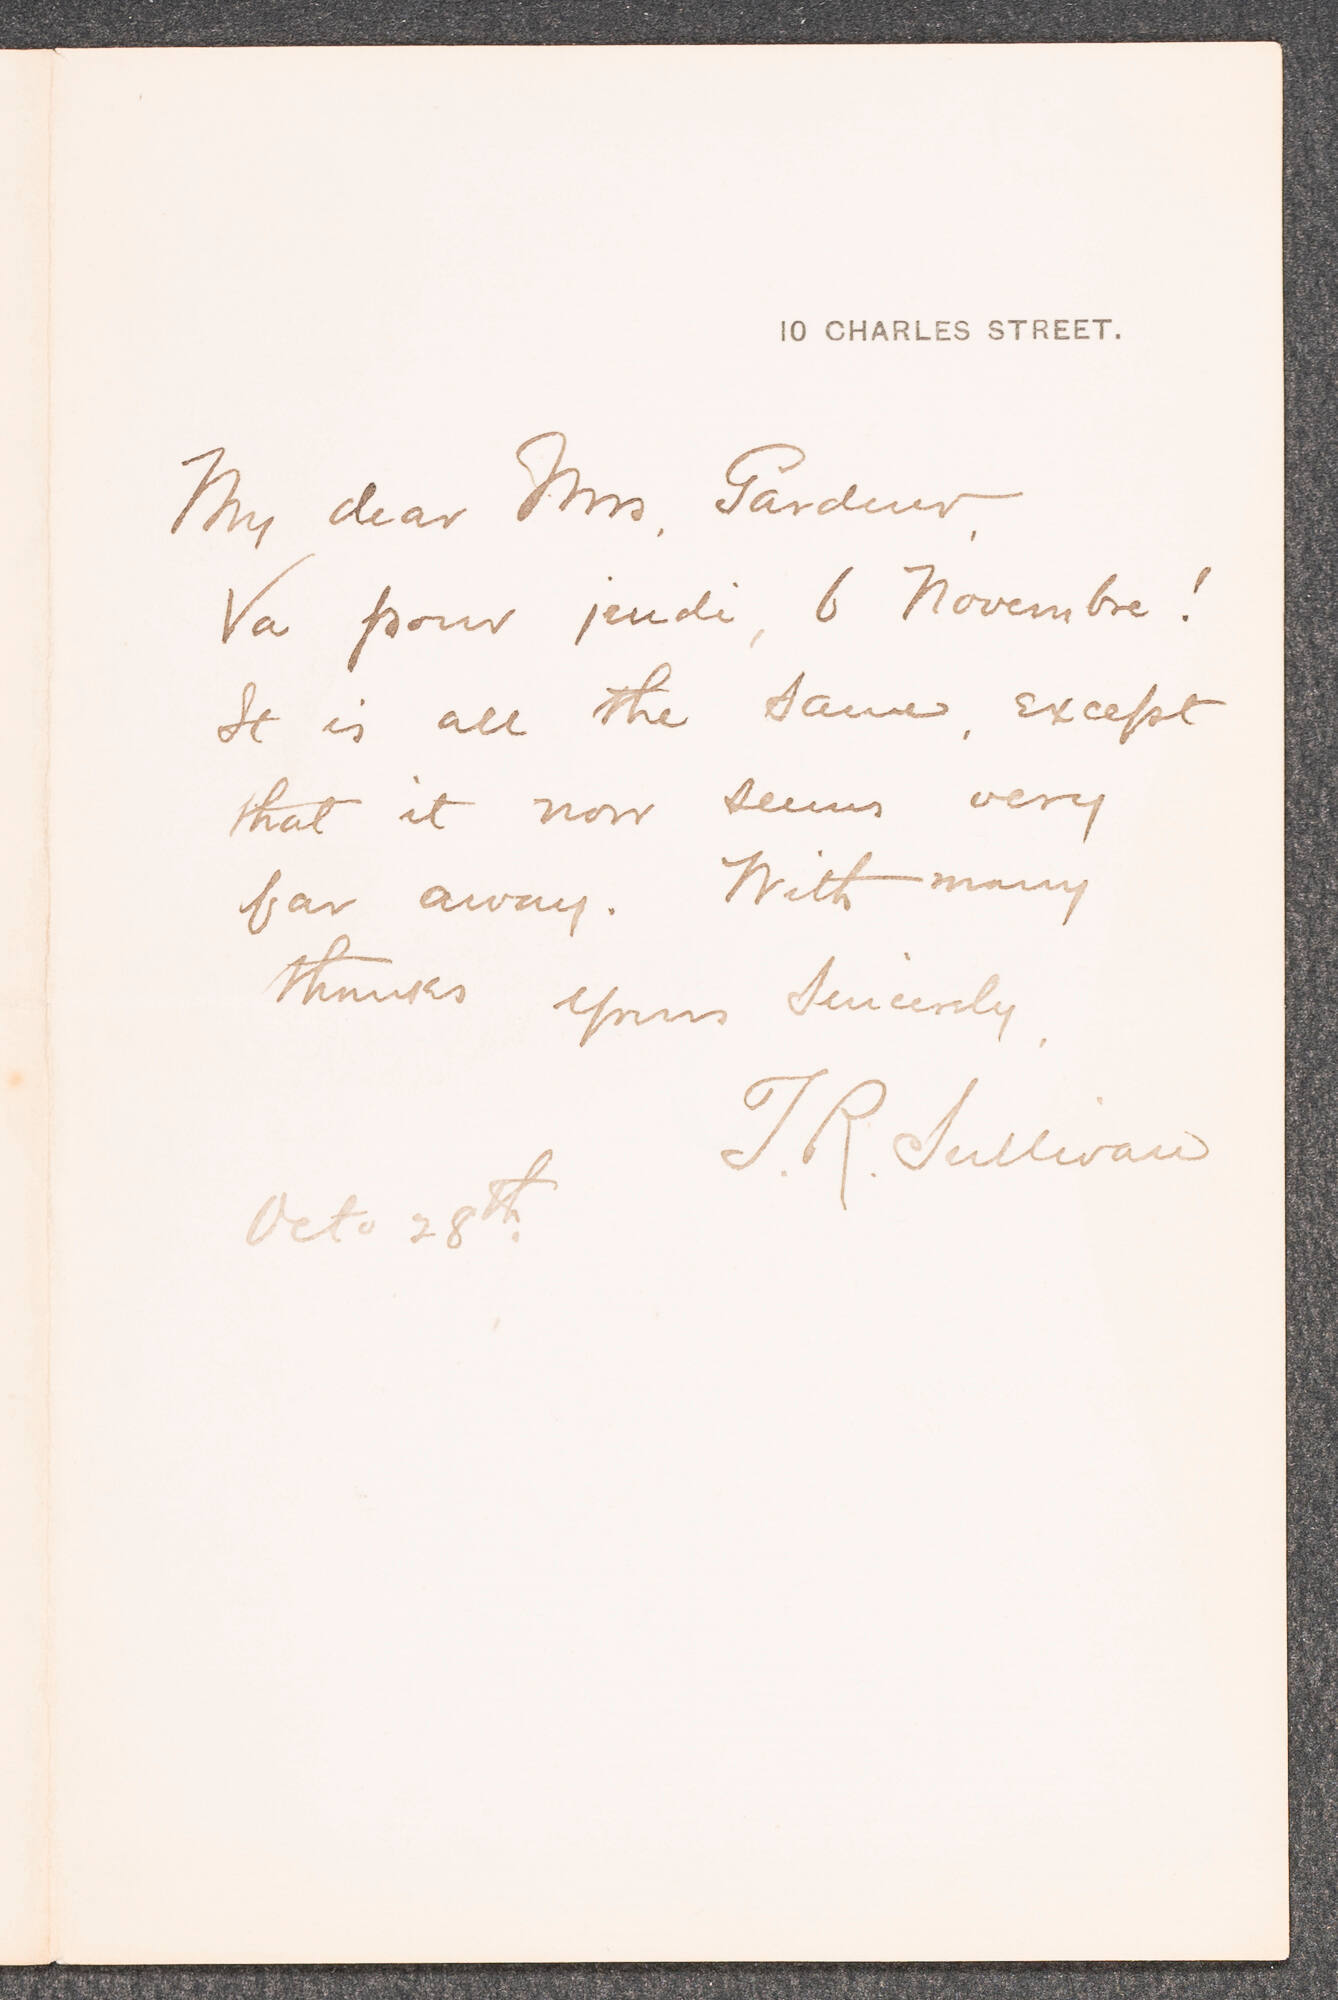 10 CHARLES STREET.
My dear Mrs. Gardner,
Va pour jeudi, 6 Novembre!
It is all the same, except
that it now seems very
far away. With many
thanks yours sincerely,
T. R. Sullivan
Octo 28th.